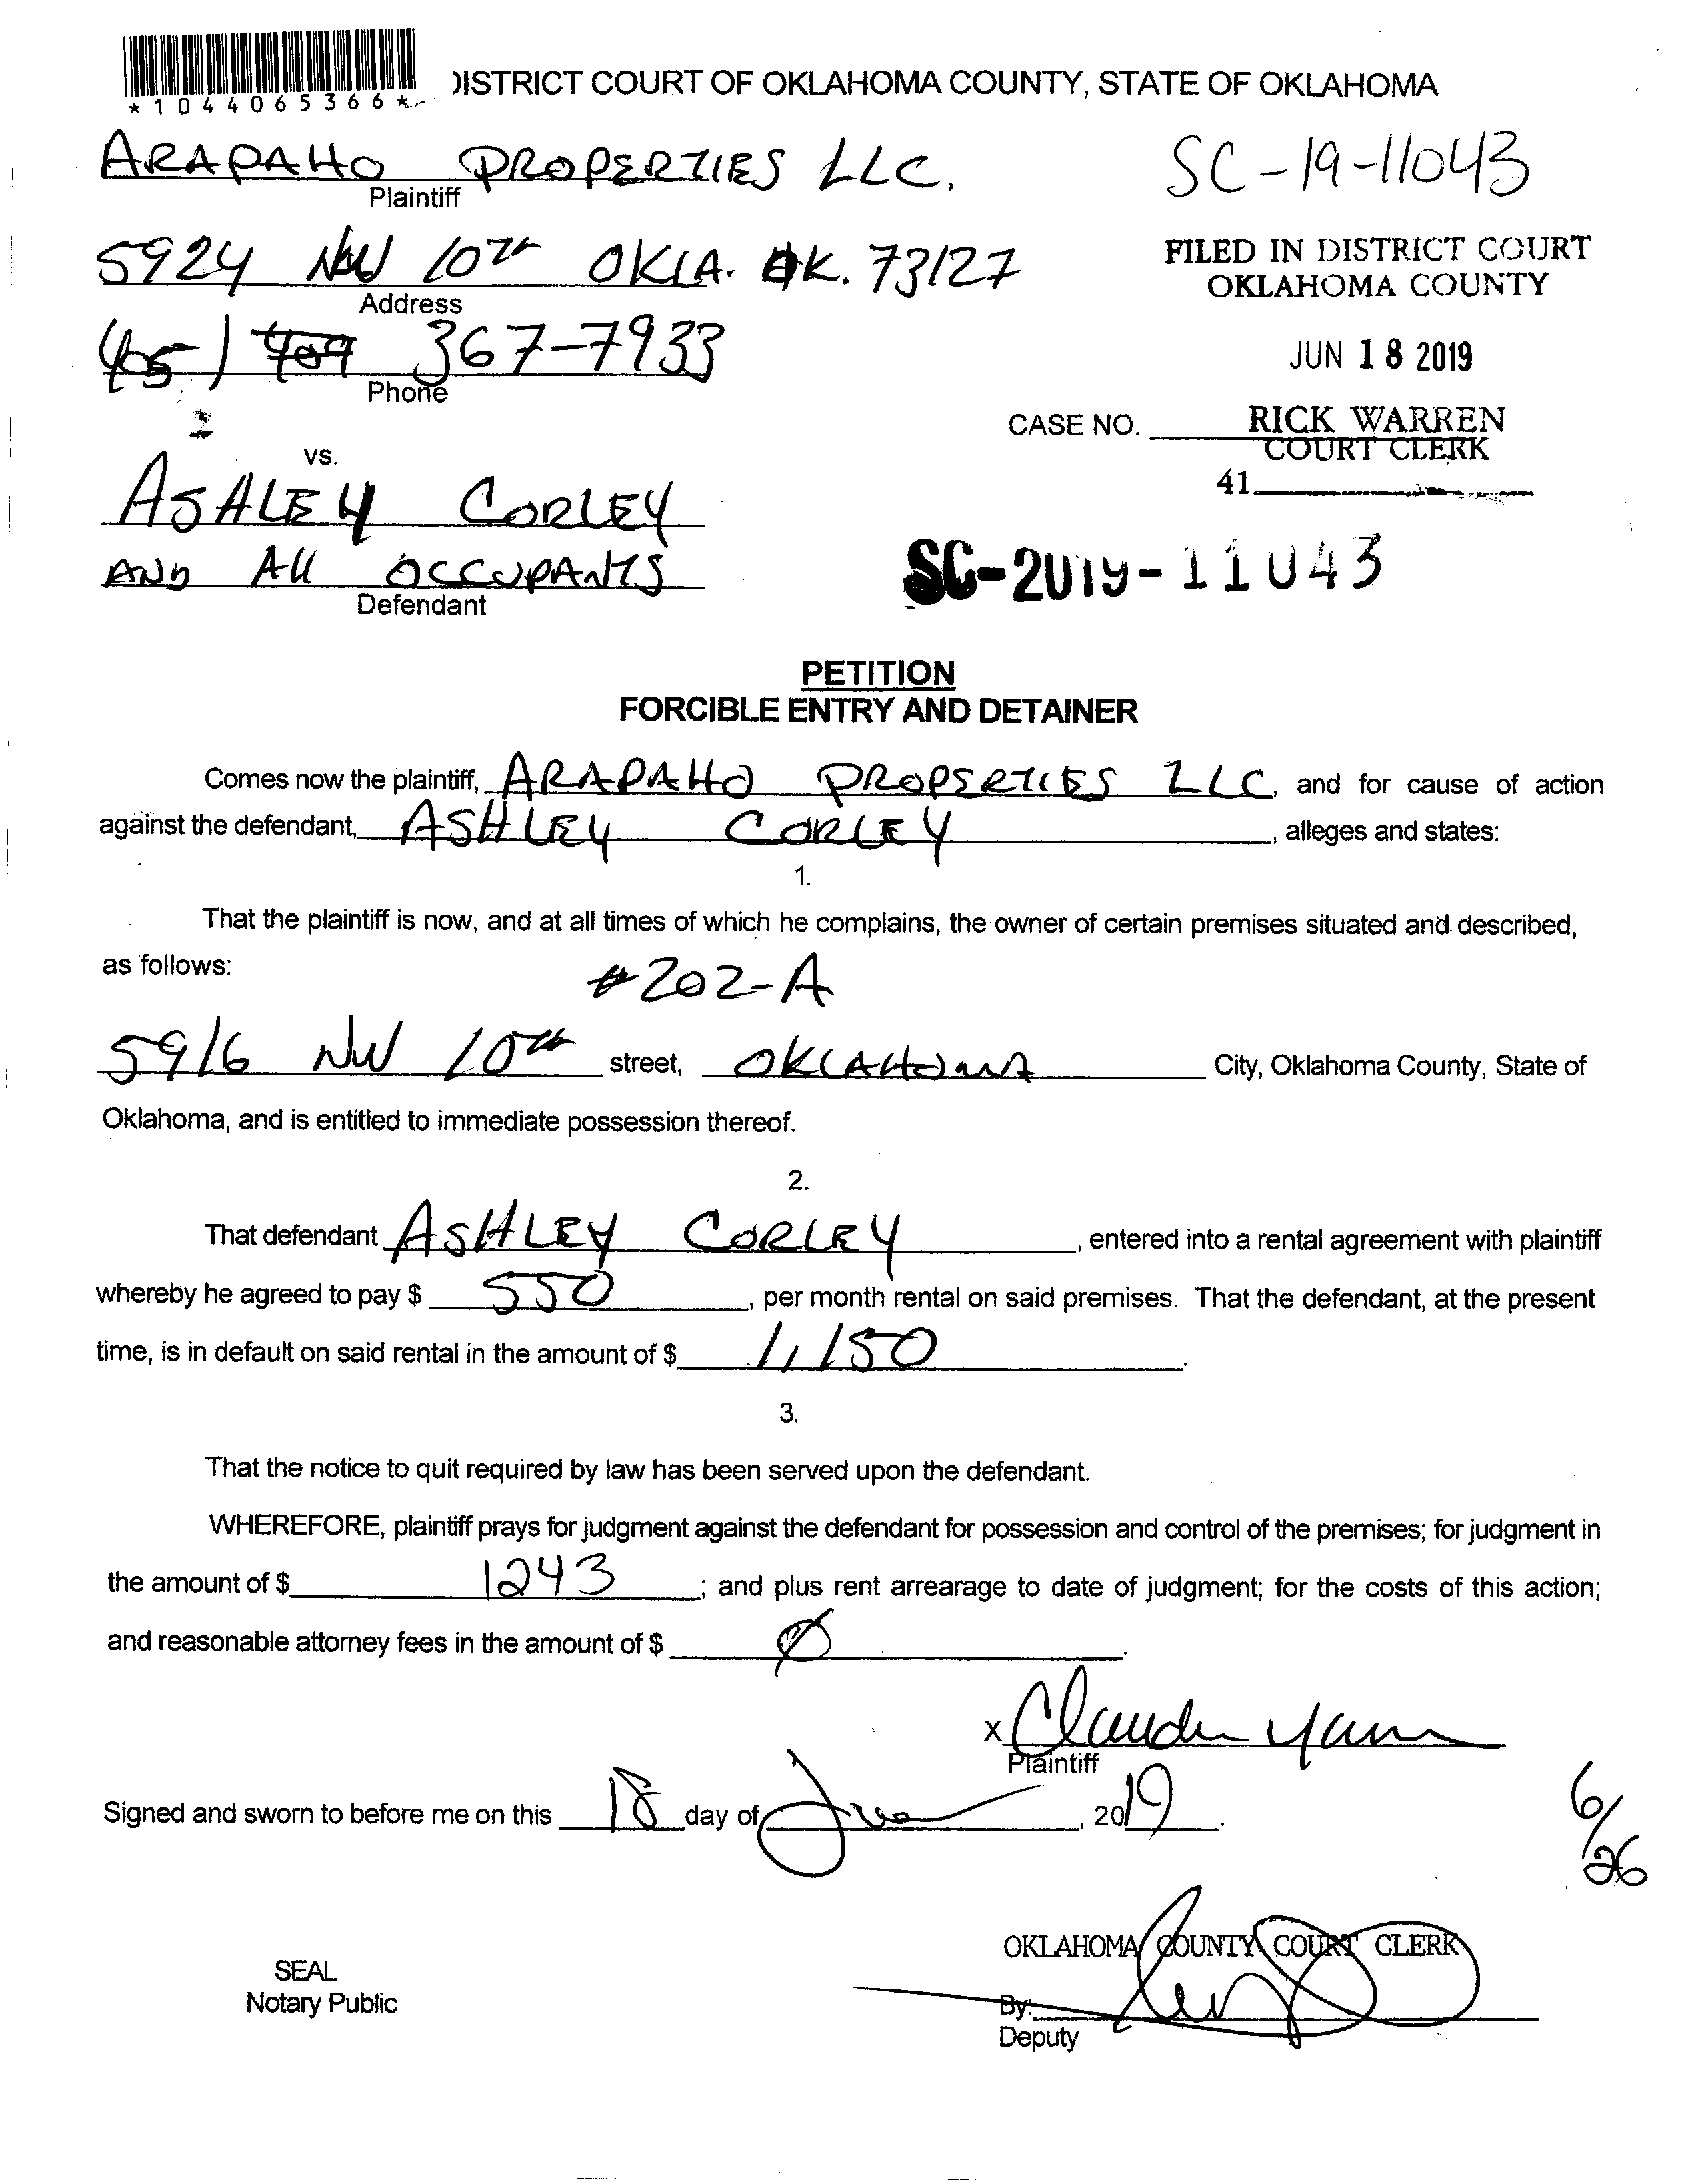 *1044065366*
DISTRICT COURT OF OKLAHOMA COUNTY, STATE OF OKLAHOMA
ARAPAHO PROPERTIES LLC.
Plaintiff
SC-19-11043
5924 NW 10TH OKLA. OK. 73127
Address
FILED IN DISTRICT COURT
OKLAHOMA COUNTY
405) 409 367-7933
Phone
JUN 18 2019
CASE NO. RICK WARREN
COURT CLERK
41
vs.
ASHLEY CORLEY
AND All OCCUPANTS
Defendant
SC-2019-11043
PETITION
FORCIBLE ENTRY AND DETAINER
Comes now the plaintiff, ARAPAHO PROPERTIES LLC, and for cause of action
against the defendant, ASHLEY CORLEY, alleges and states:
1.
That the plaintiff is now, and at all times of which he complains, the owner of certain premises situated and described,
as follows:
#202-A
5916 NW 10th street, OKLAHOMA City, Oklahoma County, State of
Oklahoma, and is entitled to immediate possession thereof.
2.
That defendant ASHLEY CORLEY, entered into a rental agreement with plaintiff
whereby he agreed to pay $ 550, per month rental on said premises. That the defendant, at the present
time, is in default on said rental in the amount of $ 1,150.
3.
That the notice to quit required by law has been served upon the defendant.
WHEREFORE, plaintiff prays for judgment against the defendant for possession and control of the premises; for judgment in
the amount of $ 1243; and plus rent arrearage to date of judgment; for the costs of this action;
and reasonable attorney fees in the amount of $ Ø.
X
Plaintiff
Signed and sworn to before me on this 18 day of June, 2019.
6/26
OKLAHOMA COUNTY COURT CLERK
SEAL
Notary Public
By:
Deputy